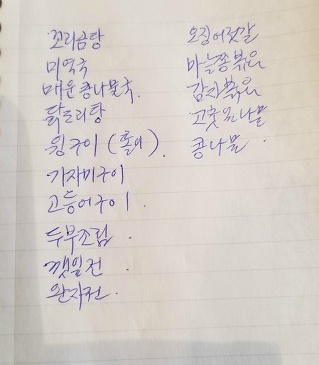 꼬리곰탕
미역국
매운 콩나물국.
닭도리탕
윙구이 (홀이).
가자미구이
고등어구이.
두부조림.
깻잎전.
완자전.
오징어젓갈
마늘쫑볶음
감자볶음
고춧잎나물
콩나물.